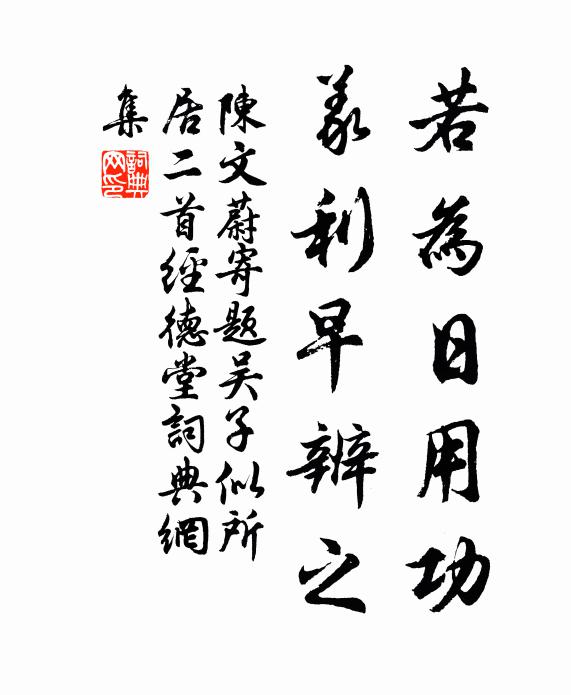 若為日用功
義利早辨之
陳文蔚寄題吴子似所
居二首經德堂詞典網
集
詞典
网印